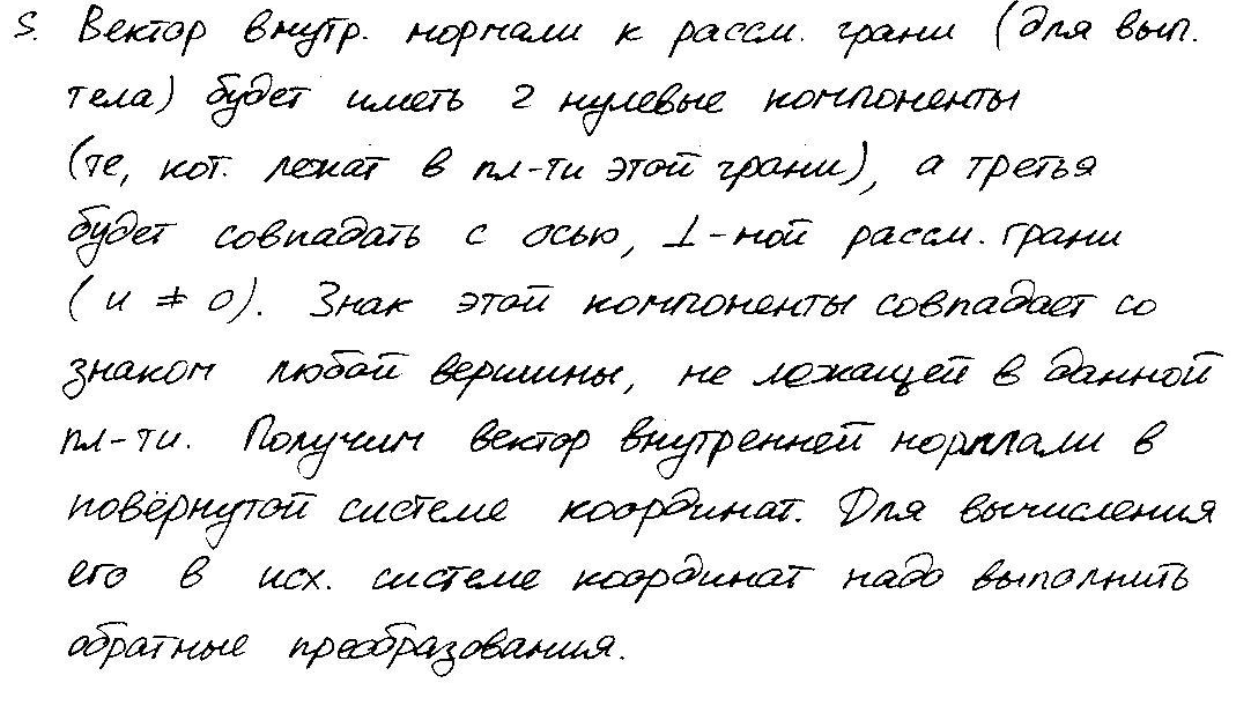 5. Вектор внутр. нормали к рассм. грани (для вып.
тела) будет иметь 2 нулевые компоненты
(те, кот. лежат в пл-ти этой грани), а третья
будет совпадать с осью, ⊥-ной рассм. грани
(и ≠ 0). Знак этой компоненты совпадает со
знаком любой вершины, не лежащей в данной
пл-ти. Получим вектор внутренней нормали в
повёрнутой системе координат. Для вычисления
его в исх. системе координат надо выполнить
обратные преобразования.